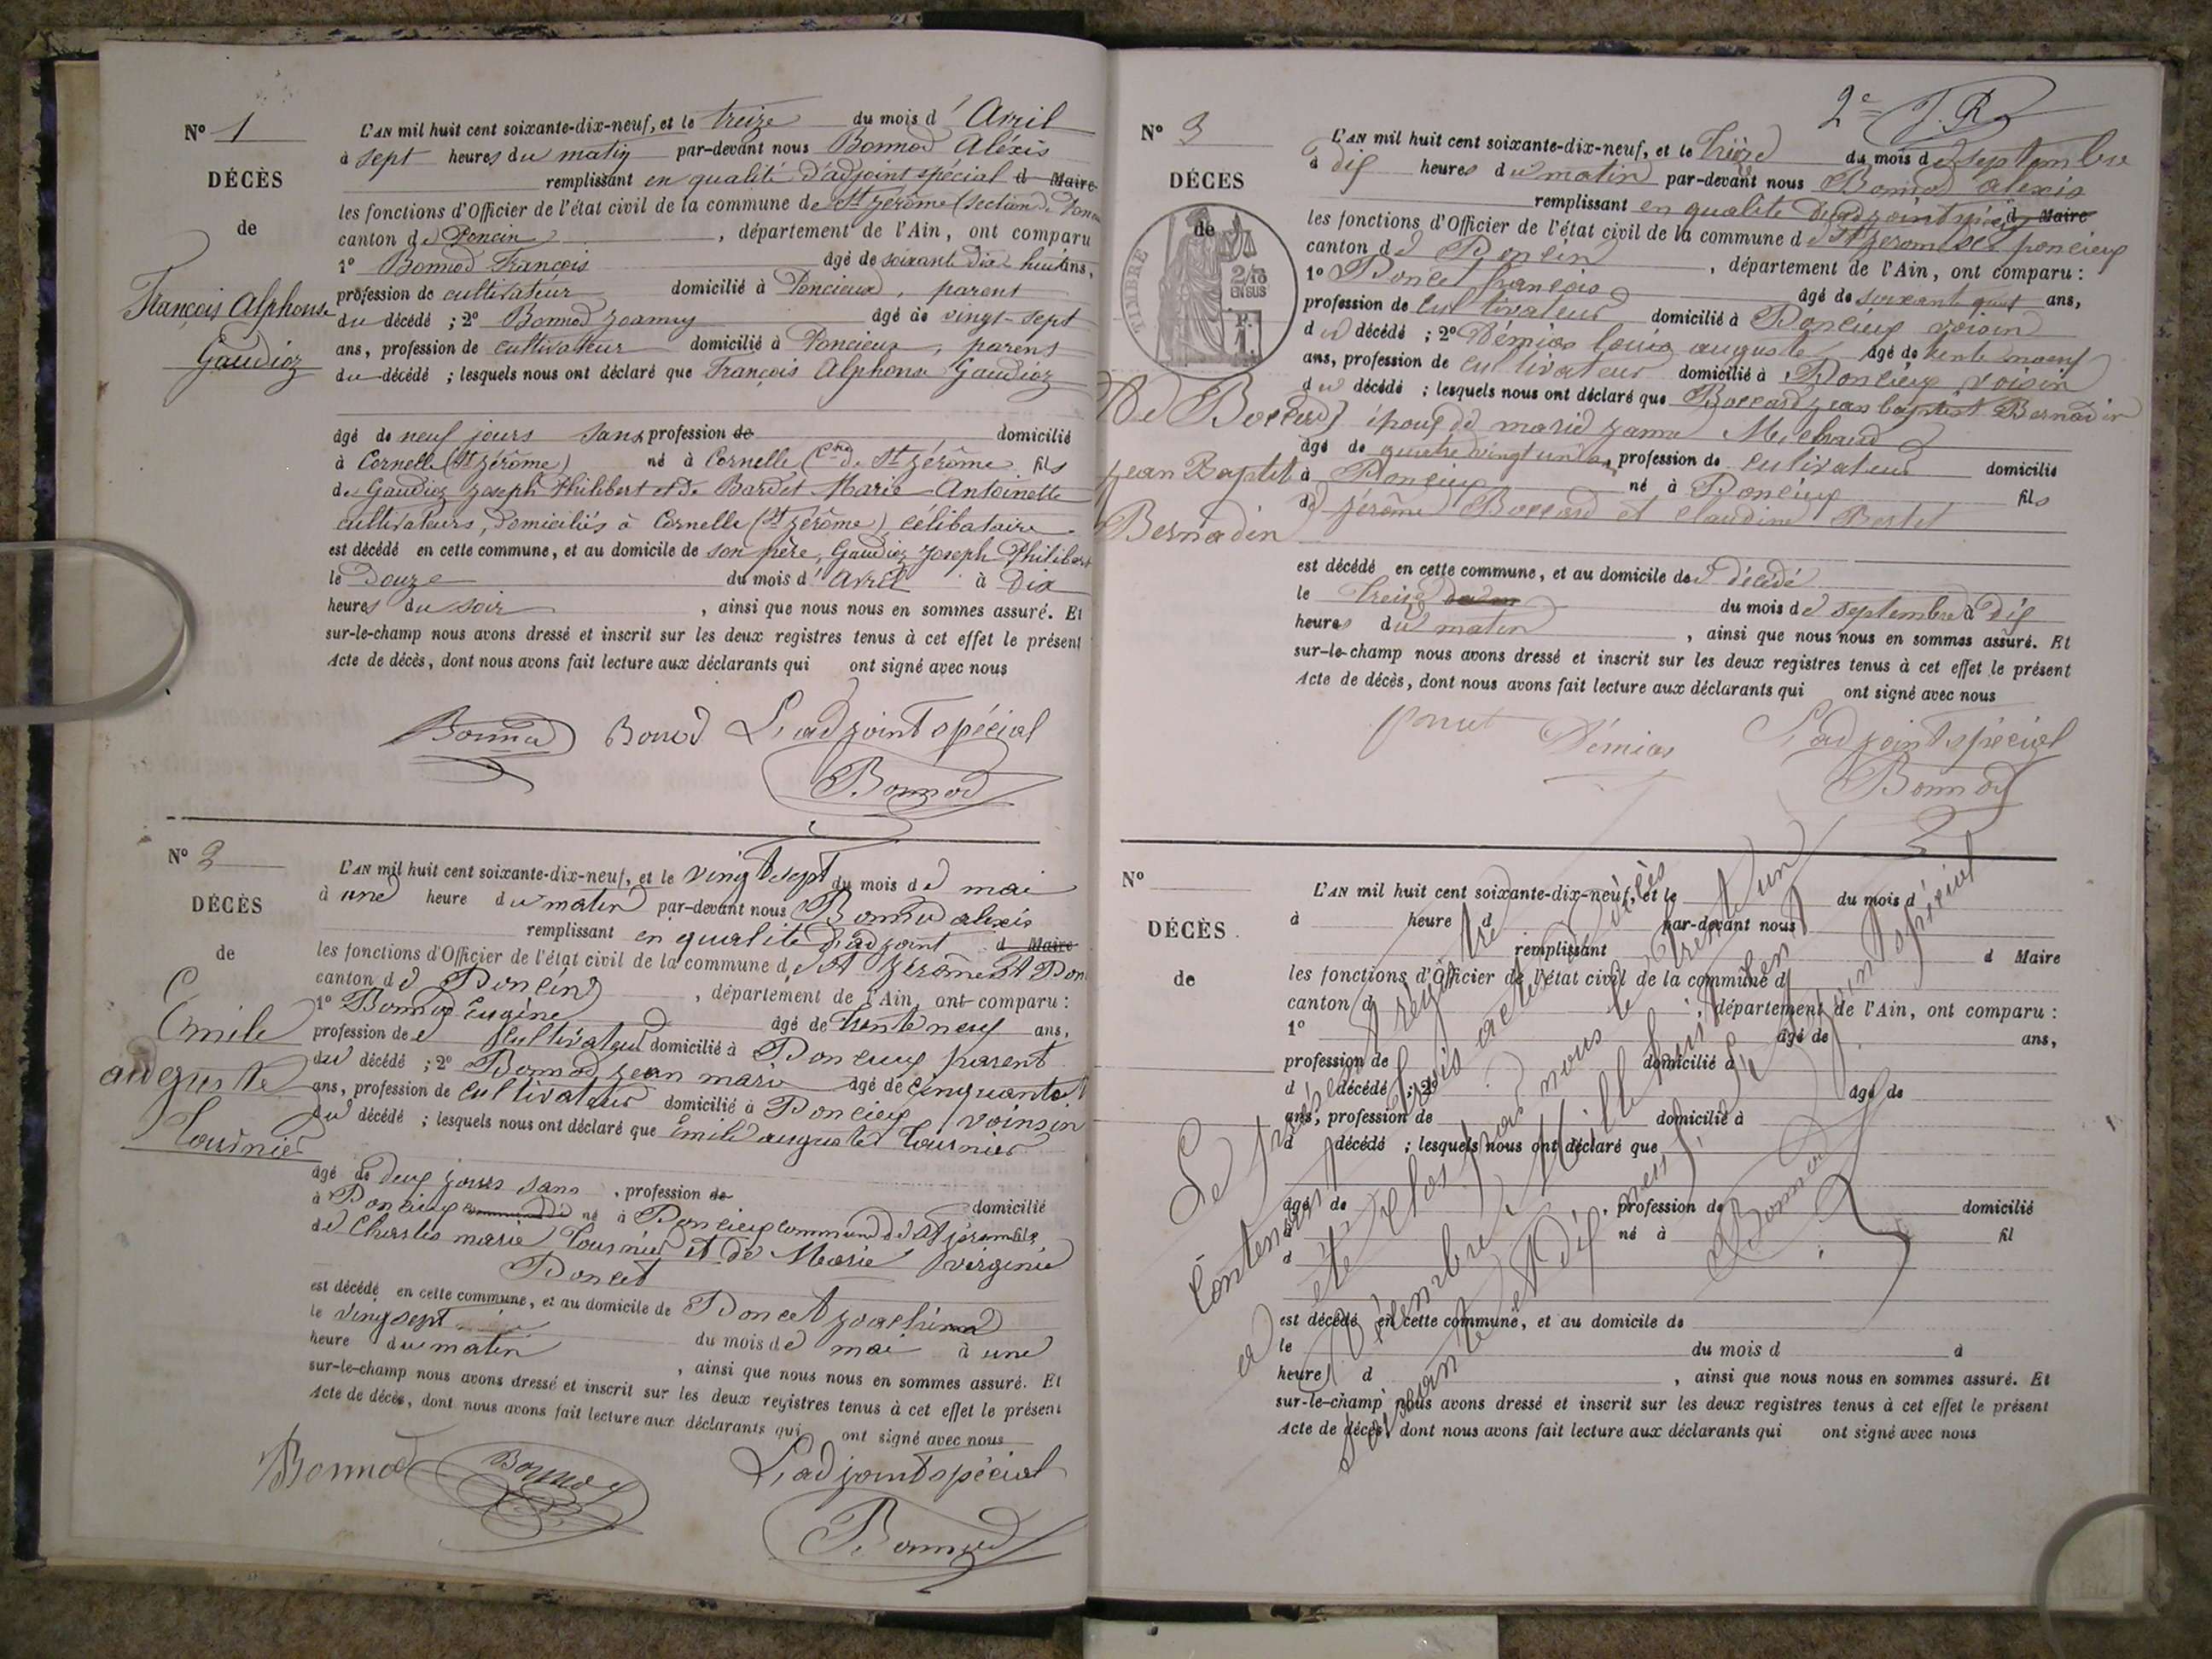 N° 1
DÉCÈS
de
François Alphonse
Gaudioz
L'AN mil huit cent soixante-dix-neuf, et le treize du mois d'Avril
à sept heures du matin par-devant nous Bonnod Aléxis
remplissant en qualité d'adjoint spécial d Maire
les fonctions d'Officier de l'état civil de la commune de St Jérôme (section de
canton de Poncin, département de l'Ain, ont comparu
1° Bonnod François âgé de soixante dix huit ans,
profession de cultivateur domicilié à Poncieux, parent
du décédé ; 2° Bonnod Joanny âgé de vingt-sept
ans, profession de cultivateur domicilié à Poncieux, parent
du décédé ; lesquels nous ont déclaré que François Alphonse Gaudioz
âgé de neuf jours sans profession de domicilié
à Cornelle (St Jérôme) né à Cornelle (Cne de St Jérôme fils
de Gaudioz Joseph Philibert et de Bardet Marie Antoinette
cultivateurs, domiciliés à Cornelle (St Jérôme) célibataire
est décédé en cette commune, et au domicile de son père, Gaudioz Joseph Philibert
le Douze du mois d'Avril à Dix
heures du soir, ainsi que nous nous en sommes assuré. Et
sur-le-champ nous avons dressé et inscrit sur les deux registres tenus à cet effet le présent
Acte de décès, dont nous avons fait lecture aux déclarants qui ont signé avec nous
Bonnod Bonod L'adjoint spécial
Bonnod
N° 2
DÉCÈS
de
Emile
auguste
Tournier
L'AN mil huit cent soixante-dix-neuf, et le vingt sept du mois de mai
à une heure du matin par-devant nous Bonnod alexis
remplissant en qualité d'adjoint d Maire
les fonctions d'Officier de l'état civil de la commune de St Jérôme
canton de Poncin, département de l'Ain, ont comparu :
1° Bonnod Eugène âgé de trente neuf ans,
profession de cultivateur domicilié à Poncieux parent
du décédé ; 2° Bonnod jean marie âgé de cinquante
ans, profession de cultivateur domicilié à Poncieux, voinsin
du décédé ; lesquels nous ont déclaré que Emile auguste Tournier
âgé de deux jours sans, profession de domicilié
à Poncieux né à Poncieux commune de St jerome fils
de Charles marie Tournier et de Marie virginie
Poncet
est décédé en cette commune, et au domicile de Poncet joachim
le vingsept du mois de mai à une
heure du matin, ainsi que nous nous en sommes assuré. Et
sur-le-champ nous avons dressé et inscrit sur les deux registres tenus à cet effet le présent
Acte de décès, dont nous avons fait lecture aux déclarants qui ont signé avec nous
Bonnod Bonnod L'adjoint spécial
Bonnod
2e
N° 3
DÉCÈS
de
TIMBRE
2/10
EN SUS
De Boccard
jean Baptist
Bernadin
L'AN mil huit cent soixante-dix-neuf, et le treize du mois de septembre
à dix heures du matin par-devant nous Bonnod alexis
remplissant en qualité d'adjoint spécial d Maire
les fonctions d'Officier de l'état civil de la commune de St jerome sec poncieux
canton de Poncin, département de l'Ain, ont comparu :
1° Poncet françois âgé de ans,
profession de cultivateur domicilié à Poncieux voisin
du décédé ; 2° Démias louis auguste âgé de trente noeuf
ans, profession de cultivateur domicilié à Poncieux voisin
du décédé ; lesquels nous ont déclaré que Boccard jean baptist Bernadin
époux de marie janne Michaud
âgé de quatre vingt un an, profession de cultivateur domicilié
à Poncieux né à Poncieux fils
de jérôme Boccard et claudine Bertet
est décédé en cette commune, et au domicile de décédé
le treize du mois de septembre à dix
heures du matin, ainsi que nous nous en sommes assuré. Et
sur-le-champ nous avons dressé et inscrit sur les deux registres tenus à cet effet le présent
Acte de décès, dont nous avons fait lecture aux déclarants qui ont signé avec nous
Démias L'adjoint spécial
Bonnod
N°
DÉCÈS
de
L'AN mil huit cent soixante-dix-neuf, et le du mois d
à heure d par-devant nous
remplissant d Maire
les fonctions d'Officier de l'état civil de la commune d
canton d, département de l'Ain, ont comparu :
1° âgé de ans,
profession de domicilié à
d décédé ; 2° âgé de
ans, profession de domicilié à
d décédé ; lesquels nous ont déclaré que
âgé de, profession de domicilié
à né à fil
d
est décédé en cette commune, et au domicile de
le du mois d à
heure d, ainsi que nous nous en sommes assuré. Et
sur-le-champ nous avons dressé et inscrit sur les deux registres tenus à cet effet le présent
Acte de décès, dont nous avons fait lecture aux déclarants qui ont signé avec nous
Le présent régistre
Contenant trois actes de décès
a été clos par nous le trente un
Décembre Mille huit cent
soixante et dix neuf. L'adjoint spécial
Bonnod